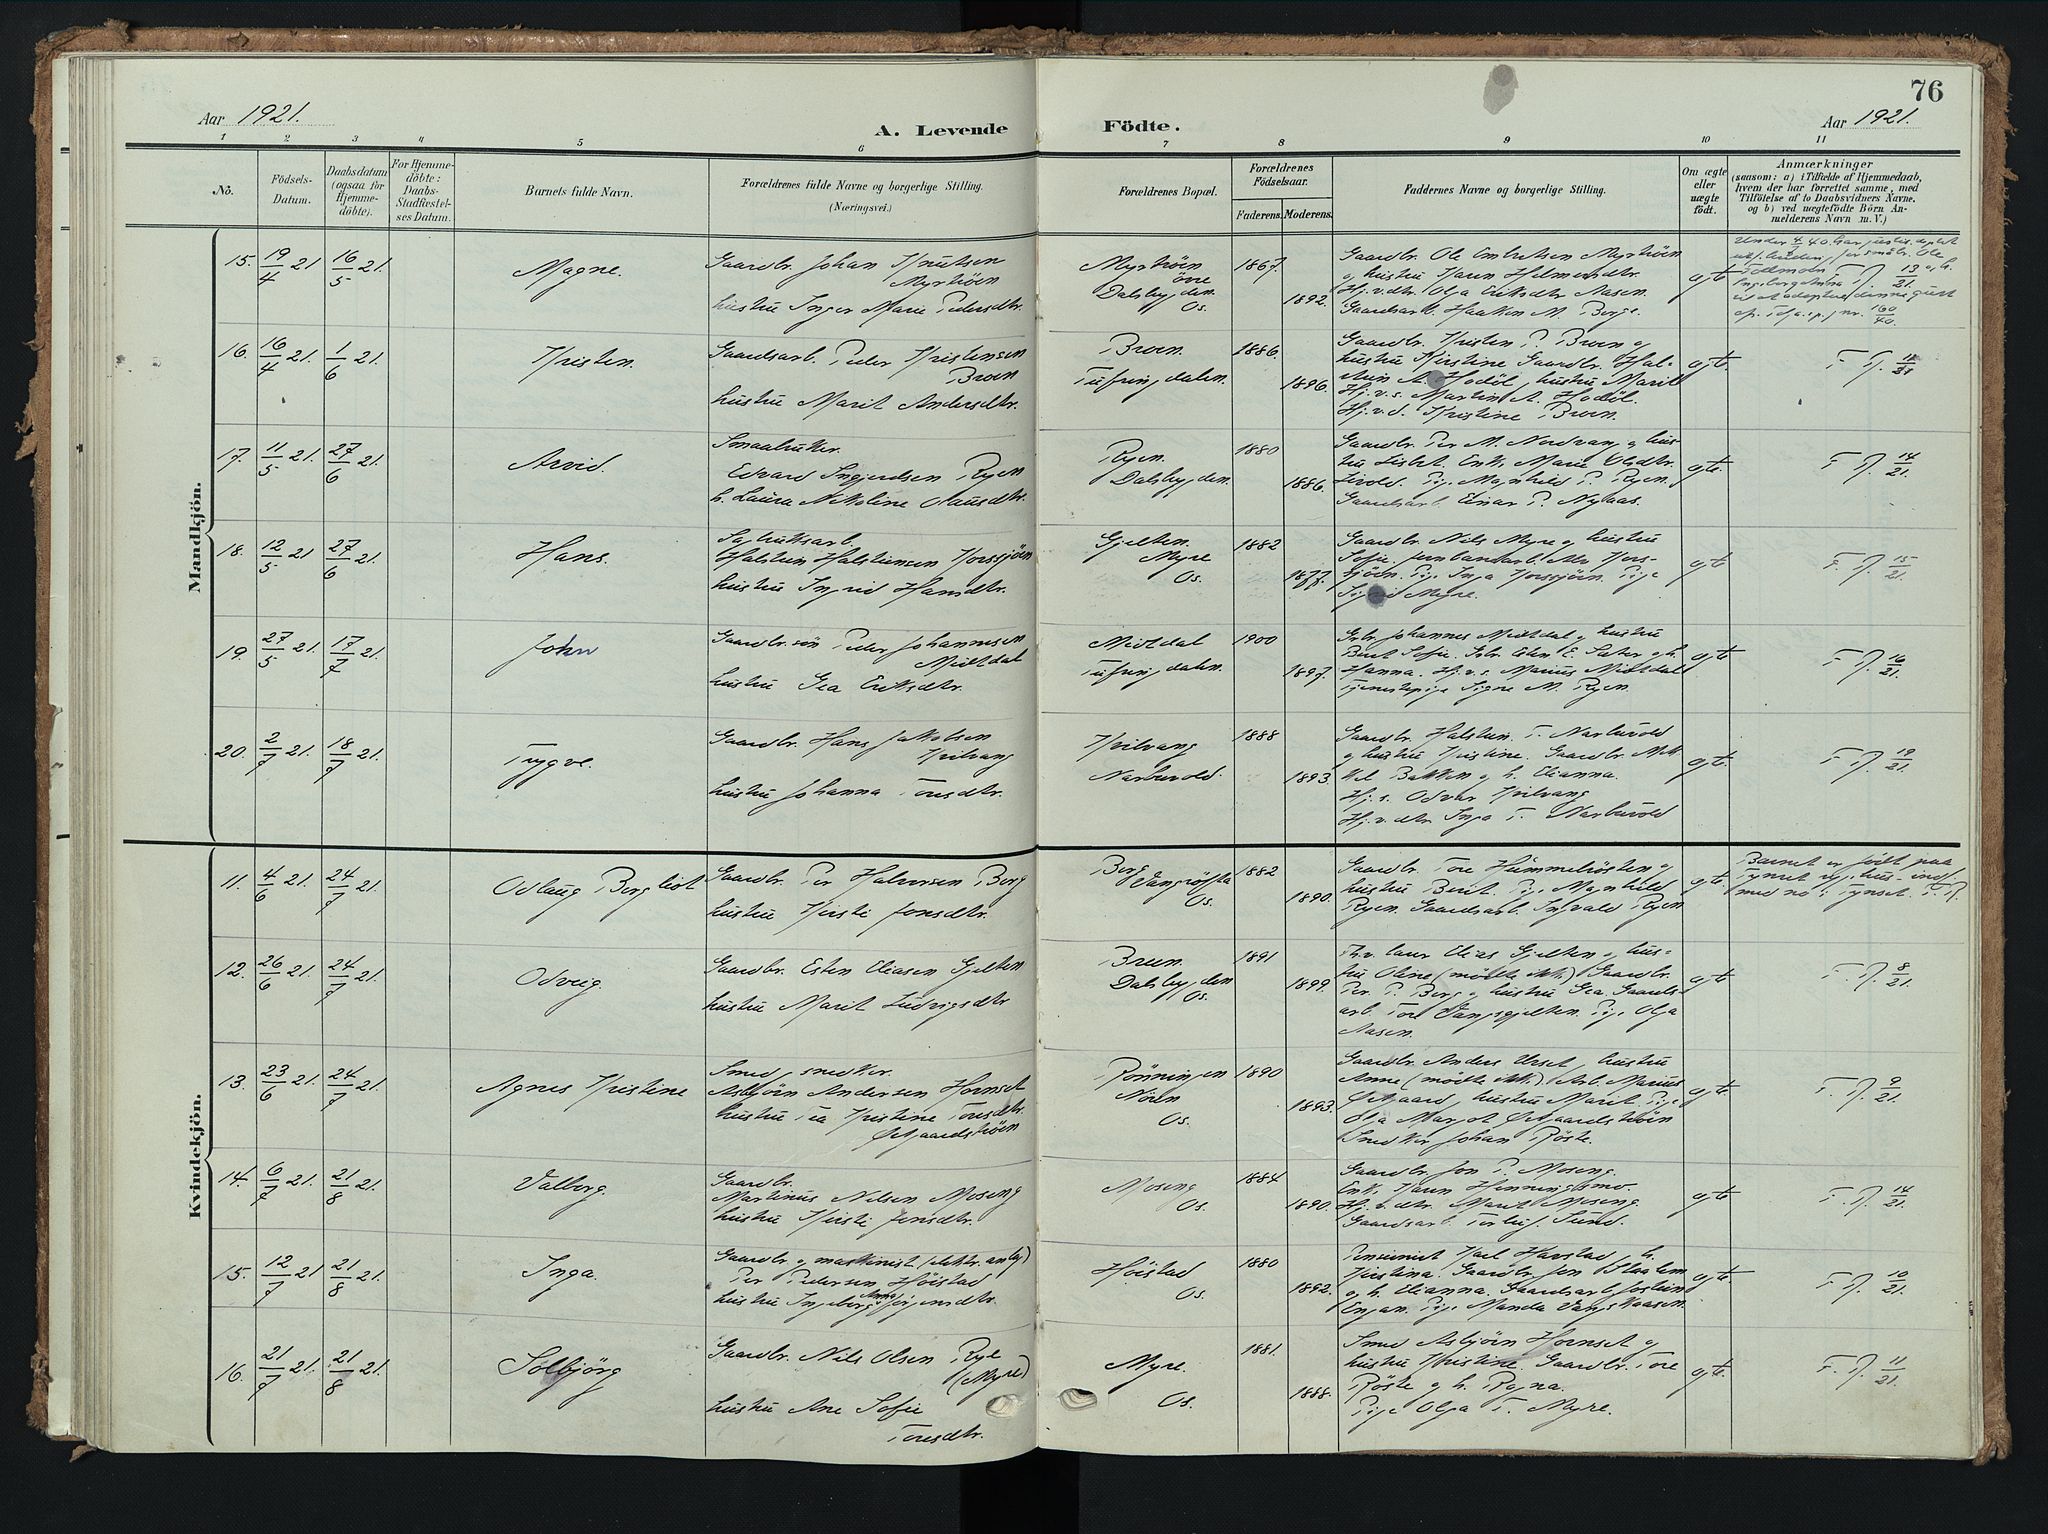 76
Aar 1921.
A. Levende Födte.
Aar 1921.
1 2 3 4 5 6 7 8 9 10 11
No.
Födsels-Datum.
Daabsdatum (ogsaa for Hjemme-döbte).
For Hjemme-döbte: Daabs-Stadfæstel-ses Datum.
Barnets fulde Navn.
Forældrenes fulde Navne og borgerlige Stilling.
(Næringsvei.)
Forældrenes Bopæl.
Forældrenes Födselsaar.
Faderens. Moderens.
Faddernes Navne og borgerlige Stilling.
Om ægte eller uægte födt.
Anmærkninger
(saasom: a) i Tilfælde af Hjemmedaab,
hvem der har forrettet samme, med
Tilföielse af to Daabsvidners Navne.
og b) ved uægtefödte Börn An-
melderens Navn m. V.)
Mandkjön.
15. 19/4 21 16/5 21. Magne.
Gaardbr. Johan Knutsen
Myrtröen
hustru Inger Marie Pedersdtr.
Myrtröen
övre
Dalsbygden.
Os.
1867. 1892.
Gaardbr. Ole Embretsen Myrtröen
og hustru Karen Helmersdtr.
Hj.v.dtr. Olja Eriksdtr Aasen.
Gaardsarb. Haakon M. Berge.
gte
F. N. 13/21.
16. 16/4 21. 1/6 21. Kristen.
Gaardsarb. Peder Kristensen
Broen
hustru Marit Andersdtr.
Broen.
Tufsingdalen.
1886. 1896.
Gaardbr. Kristen P. Broen og
hustru Kirstine Gaardbr. Hal-
stein A. Hodöl, hustru Marit
Hj.v.s. Martin A. Hodöl.
Hj.v.d. Kristine Broen.
gte.
F. N. 11/21
17. 11/5 21. 27/6 21. Arvid.
Smaabruker.
Edvard Ingvardsen Ryen
h. Laura Nikoline Olausdtr.
Ryen.
Dalsbygden.
1880 1886.
Gaardbr. Per M. Nordvang og hus-
tru Lisbet. Enk. Marie Olsdtr.
Livold. Pige Magnhild P. Ryen.
Gaardsarb. Einar P. Nylaas.
gte.
F. N. 14/21.
18. 12/5 21 27/6 21. Hans.
Sagbruksarb.
Halstein Halsteinsen Korssjöen
hustru Ingrid Hansdtr.
Gjelten.
Myre
Os.
1882 1877.
Gaardbr. Nils Myre og hustru
Sofie. Jernbanearb. Kors-
sjöen. Pige Inga Korssjöen. Pige
Sigrid Myre.
gte
F. N. 15/21.
19. 27/5 21. 17/7 21. John
Gaardbr.sön Peder Johannesen
Midtdal
hustru Gea Eriksdtr.
Midtdal
Tufsingdalen.
1900 1897.
Gbr. Johannes Midtdal og hustru
Berit Sofie. Gbr. Esten E. Sater og h.
Hanna. Hj.v.s. Marius Midtdal
Tjenestepige Signe M. Ryen.
gte.
F. N. 16/21.
20. 2/7 21. 18/7 21. Trygve.
Gaardbr. Hans Jakobsen
Kvilvang
hustru Johanna Toresdtr.
Kvilvang
Narbuvold.
1888 1893.
Gaardbr. Halstein T. Narbuvold
og hustru Kristine. Gaardbr. Mik-
kel Bakken og h. Elianna.
Hj. s. Odvar Kvilvang
Hj.v.dtr. Inga T. Narbuvold
gte.
F. N. 19/21.
Kvindekjön.
11. 4/6 21. 24/7 21. Odlaug Bergliot
Gaardbr. Per Halvorsen Berg
hustru Kirsti Jonsdtr.
Berg
Vangröfta
Os.
1882 1890.
Gaardbr. Tore Hummelvösten og
hustru Berit. Pige Magnhild
Ryen. Gaardsarb. Ingvald Ryen
gte.
Barnet er födt paa
Tynset sykehus - ind-
med no i Tynset. F. N.
12. 26/6 21. 24/7 21. Odveig.
Gaardbr. Esten Eliasen Gjelten
hustru Marit Ludvigsdtr
Breen.
Dalsbygden
Os.
1891 1899.
Fh.v. lærer Elias Gjelten og hus-
tru Oline (mödte ikke) Gaardbr.
Per. P. Berg og hustru Gea. Gaards-
arb. Tore Vangsgjelten. Pige Olga
Aasen.
gte
F. N. 8/21.
13. 23/6 21. 24/7 21. Agnes Kristine
Smed, snedker.
Asbjörn Andersen Hornset
hustru Tea Kristine Toresdtr.
Örgaardströen
Rönningen
Nören
Os.
1890 1893.
Gaardbr. Anders Urset, hustru
Anne (mödte ikke). Arb. Marius
Örgaard, hustru Marit. Pige
Olga Margot Örgaardströen
Snedker Johan Röste.
gte.
F. N. 9/21.
14. 6/7 21. 21/8 21. Valborg.
Gaardbr.
Martinus Nilsen Moseng
hustru Kirsti Jonsdtr.
Moseng
Os.
1884 1890.
Gaardbr. Jon P. Moseng.
Enk. Karen Henningsmo.
Hj.v.dtr. Marit Moseng.
Gaardsarb. Torleif Sund.
gte.
F. N. 14/21.
15. 12/7 21 21/8 21. Inga.
Gaardbr. og maskinist (elektr. anlæg)
Per Pedersen Höistad
hustru Ingeborg Anna Jörgensdtr.
Höistad
Os.
1880 1892.
Pensionist Karl Harstad h.
Kirstina. Gaardbr. Jon
og h. Elianna. Gaardsarb. Jostein
Engan. Pige Manda Vangskaasen.
gte.
F. N. 10/21.
16. 21/7 21. 21/8 21. Solbjörg
Gaardbr. Nils Olsen Rye
(Myre)
hustru Ane Sofie
Toresdtr.
Myre.
Os.
1881. 1888.
Smed Asbjörn Hornset og
hustru Kristine. Gaardbr. Tore
Röste og h. Ragna.
Pige Olga T. Myre.
gte.
F. N. 11/21.